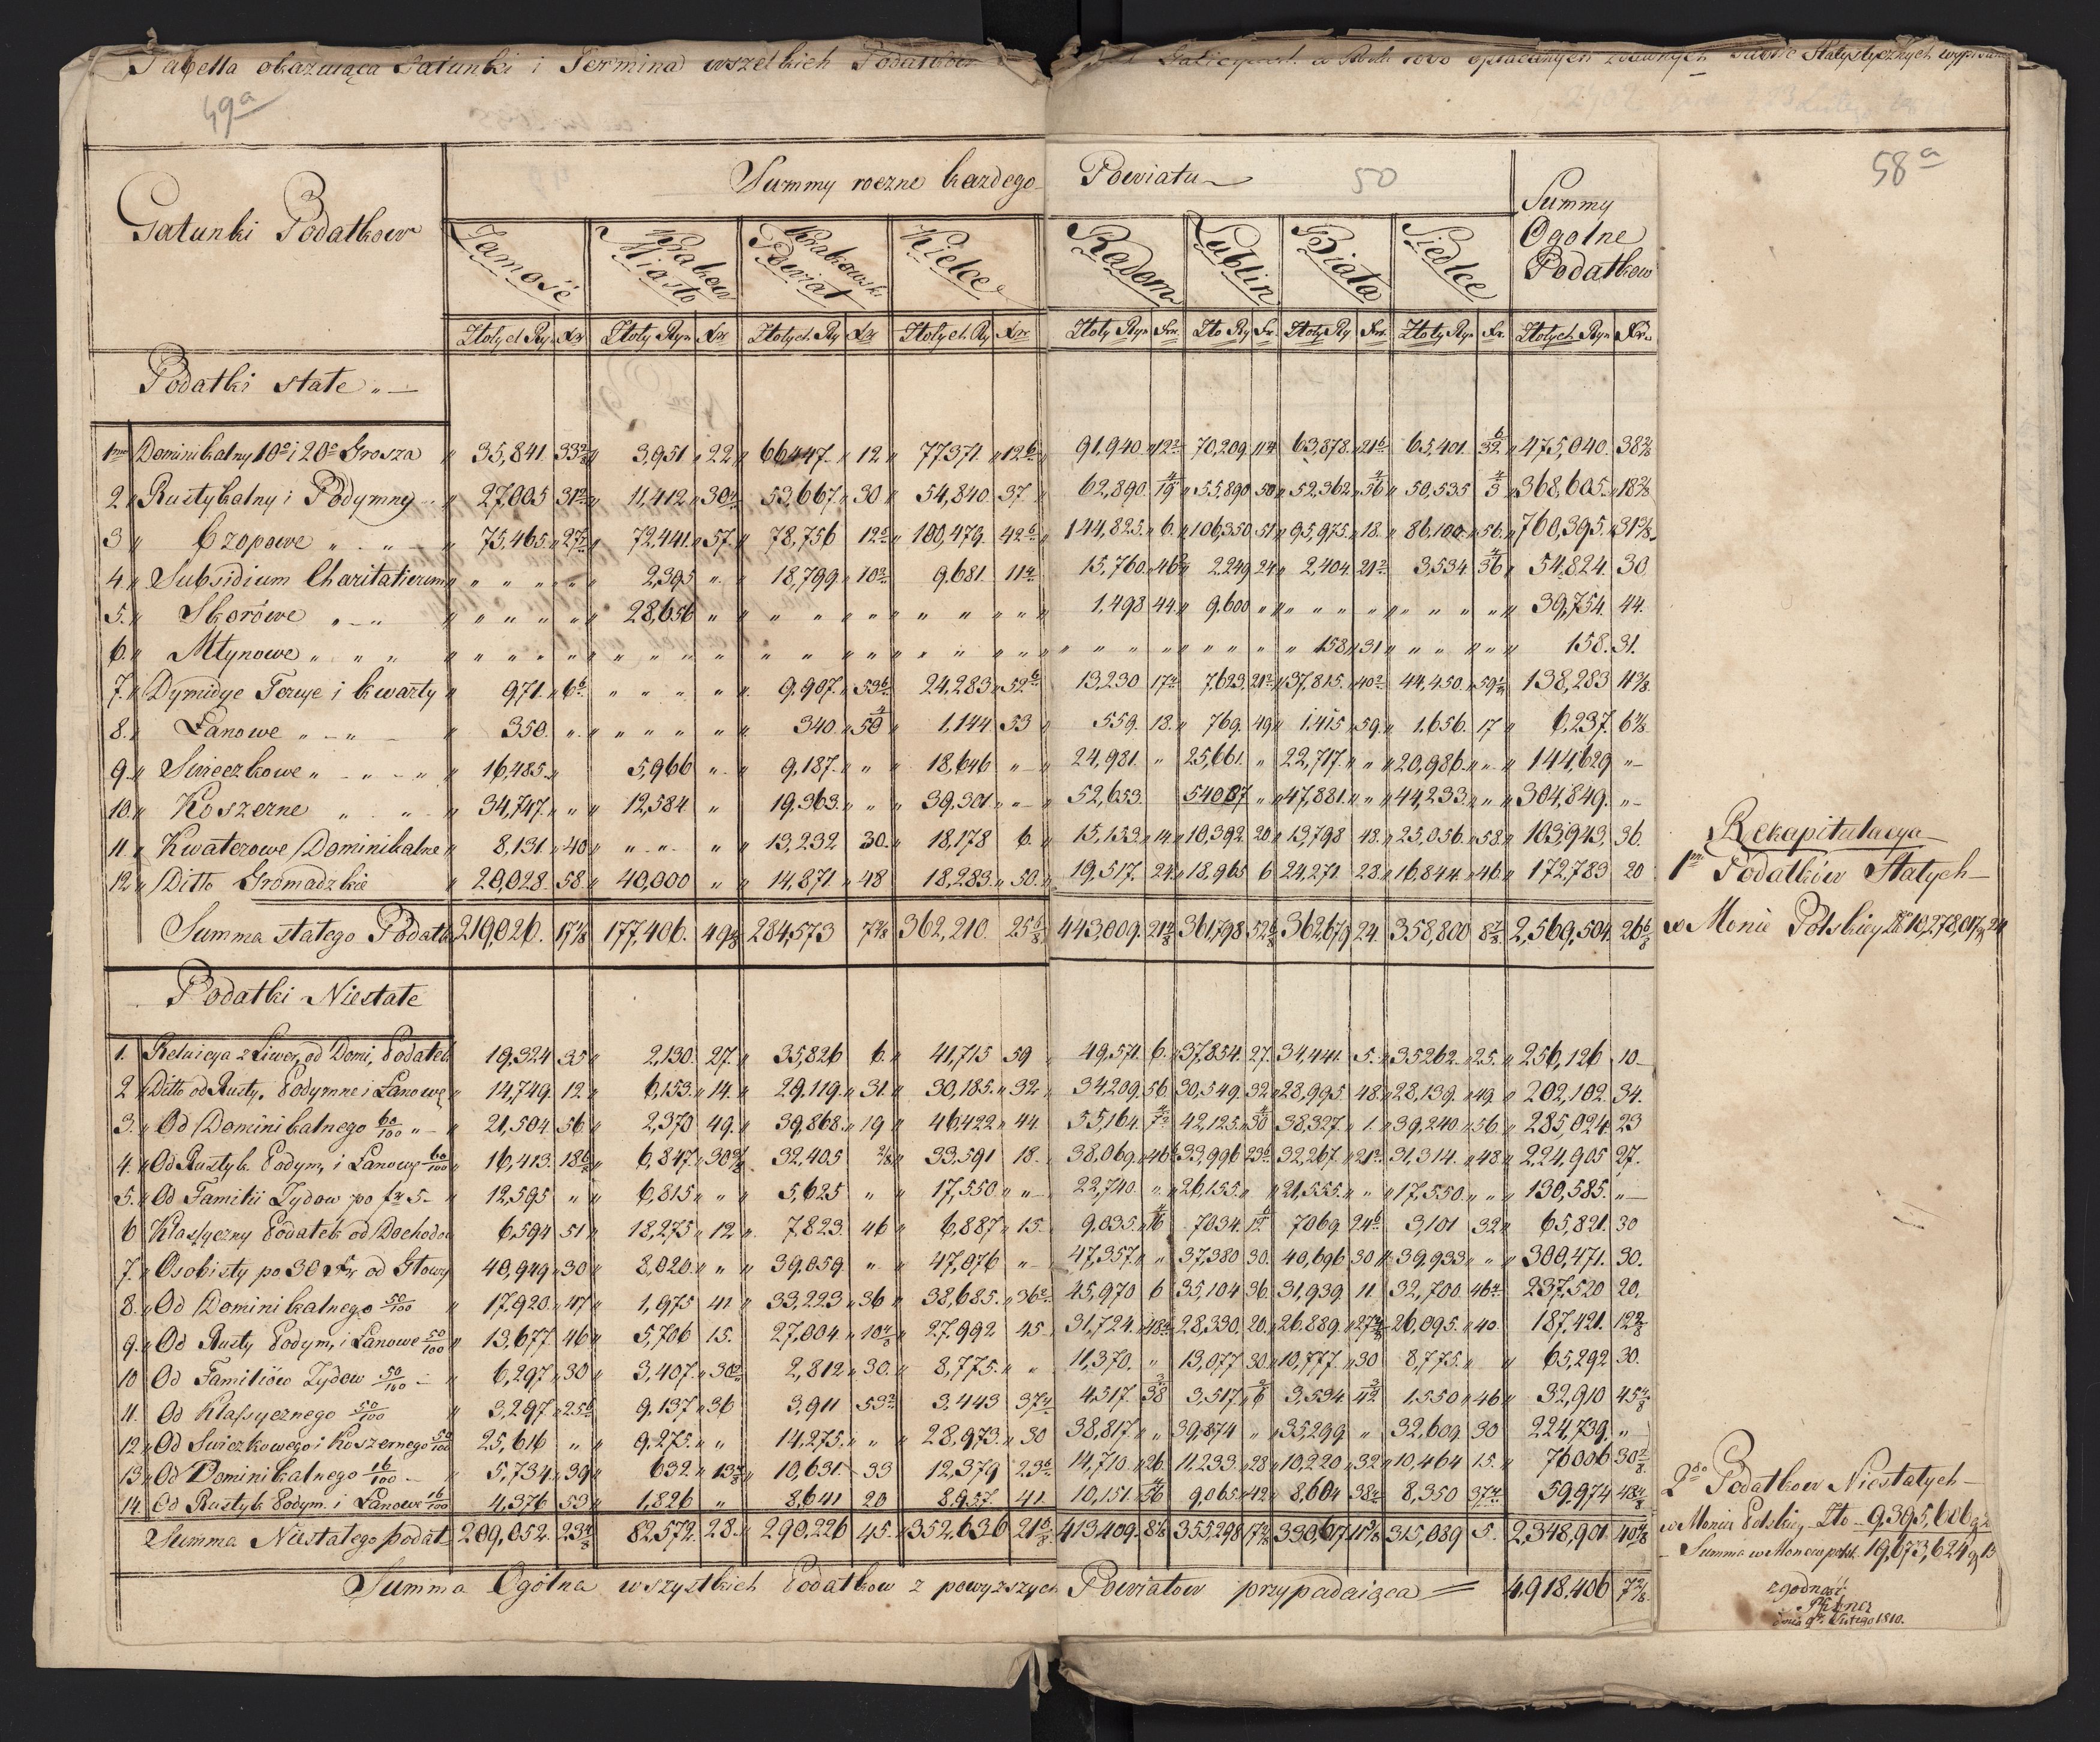 Tabella okazuiąca Gatunki i Termina wszelkich Podatkow Galicyach w Roku opłacanych Statystycznych
49a
Summy roczne każdego Powiatu
50
58a
Gatunki Podatkow
Summy Ogolne Podatkow
Zamość Krakow Miasto Krakowski Powiat Kielce Radom Lublin Biała Siedlce
Złotych Ryn Xr Złoty Ryn Xr Złotych Ry Xr Złotych Ry Xr Złoty Ryn Xr Zło Ry Xr Złoty Ry Xr Złoty Ryn Xr Złotych Ryn Xr
Podatki stałe
1mo Dominikalny 10o i 20o Grosza 35,841. 33 2/8 3,951 22 66447. 12 77371. 12 6 91,940 12 2 70,209 11 4 63,878. 21 6 65,401. 32 6 475,040. 38 2/8
2 Rustykalny i Podymny 27,005 31 2 11,412 30 4 53,667. 30 54,840 37 62,890. 19 4 55,890 50 52,362 56 4 50,535 3 4 368,605. 18 2/8
3 Czopowe 75,465. 27 6 72,441. 57. 78,756 12 2 100,479. 42 6 144,825. 6. 106,350 51 95,975. 18. 86,100. 56. 760,395. 31 2/8
4. Subsidium Charitativum 2,395 18,799 10 2 9,681. 11 4 15,760. 46 2 2,249 24 2,404. 21 2 3,534 36 4 54,824. 30
5. Skorówe 28,656 1,498 44. 9,600 39,754. 44.
6. Młynowe 158 31 158. 31.
7. Dymidye Tercye i kwarty 971. 6 6 9,907. 53 6 24,283 52 6 13,230 17 2 7,623. 21 2 37,815. 40 2 44,450. 59 2 138,283 11 2/8
8. Łanowe 350. 340. 50 4 1,144 53 559. 18. 769. 49 1,415 59. 1,656. 17 6,237. 6 4/8
9. Swieczkowe 16,485. 5,966 9,187. 18,646 24,981. 25,661. 22,717. 20,986. 144,629
10. Koszerne 34,747. 12,584 19,363. 39,301. 52,653. 54087 47,881. 44,233. 304,849.
11. Kwaterowe Dominikalne 8,131. 40 13,232 30. 18,178 6. 15,153. 14 10,392 20 13,798 48. 25,056. 58. 103,943. 36.
12 Ditto Gromadzkie 20,028. 58. 40,000 14,871. 48 18,283. 50. 19,517. 24 18,965 6 24,271. 28. 16,844. 46 172,783 20
Summa stałego Podatku 219,026. 17 4/8 177,406. 49 4/8 284,573 7 2/8 362,210. 25 6/8 443,009. 21 2/8 361,798 52 6/8 362,679 24 358,800 8 2/8 2,569,504. 26 6/8
Rekapitulacya
1mo Podatków Stałych
w Monie Polskiey Zło 10,278,017 g 24
Podatki Niestałe
1. Reluicya z Liwer, od Domi, Podatek 19,324 35 2,130. 27. 35,826 6. 41,715 59 49,571. 6. 37,854. 27. 34,441. 5. 35262. 25. 256,126 10
2 Ditto od Rusty. Podymne i Łanowe 14,749. 12. 6,153. 14. 29,119. 31. 30,185. 32 34209. 56 30,549. 32 28,995. 48. 28,139. 49. 202,102. 34.
3. Od Dominikalnego 60/100 21,504. 56. 2,370 49. 39,868. 19 46422 44 55,164 7 4 42,125. 30 4 38,327. 1. 39,240 56. 285,024. 23
4. Od Rustyk Podym, i Łanowe 60/100 16,413. 18 6/8 6,847. 30 6/8 32,405 2/8 33,591 18. 38,069. 46 6 33,996 23 6 32,267. 21 2 31,314. 48 224,905 27.
5. Od Familii Żydow po fr 5 12,595 6,815 5,625 17,550. 22,740. 26,155. 21,555. 17,550. 130,585.
6 Klassyczny Podatek od Dochodow 6,594 51 18,275 12 7,823. 46 6,887 15. 9,035. 16 4 7034. 12 6 7069 24 6 3,101 32 65,821. 30
7. Osobisty po 30 Xr od Głowy 40,949 30 8,020. 39,059 47,076 47,357. 37,380 30. 40,696 30 39,933 300,471. 30.
8. Od Dominikalnego 50/100 17,920. 47 1,975 41 33,223 36 38,685. 36 2 45,970 6 35,104 36. 31,939 11. 32,700. 46 4 237,520 20.
9. Od Rusty Podym, i Łanowe 50/100 13,677. 46 5,706 15. 27,004. 10 4/8 27,992 45 31,724. 48 4 28,330 20. 26,889. 27 2/8 26,095. 40. 187,421. 12 2/8
10 Od Familiów Żydow 50/100 6,297 30 3,407. 30 2,812 30. 8,775. 11,370. 13,077 30. 10,777. 30 8,775. 65,292 30.
11. Od Klassycznego 50/100 3,297. 25 6 9,137 36 3,911 53 2 3,443 37 4 4,517. 38 3,517 6 3,534. 42 1,550 46 32,910 45 4/8
12 Od Swiczkowego i Koszernego 50/100 25,616 9,275. 14,275. 28,973. 30 38,817. 39,874 35299 32,609. 30 224,739.
13 Od Dominikalnego 16/100 5,734 39 632. 13 4/8 10,631 33 12,379 23 6 14,710. 26 11,233. 28 10,220 32 10,464 15. 76006 30 2/8
14. Od Rustyk Podym. i Łanowe 16/100 4,376 53 1,826 8,641 20 8,957. 41 10,151. 56 4 9,065 42 8,604 38 4 8,350 37 4 59,974 48 4/8
Summa Niestałego podat 209,052. 23 4/8 82,572. 28. 290,226 45. 352,636 21 6/8 413,409. 8 6/8 355298 17 2/8 330,617 15 2/8 315,089 5. 2,348,901. 40 4/8
Summa Ogólna wszystkich Podatkow z powyższych Powiatow przypadaiąca = 4,918,406 7 2/8
2do Podatkow Niestałych
w Monie Polskiey Zło 9,395,606 g 2
Summa w Monecie polsk. 19,673,624 g 13
zgodność
dnia 9 Lutego 1810.